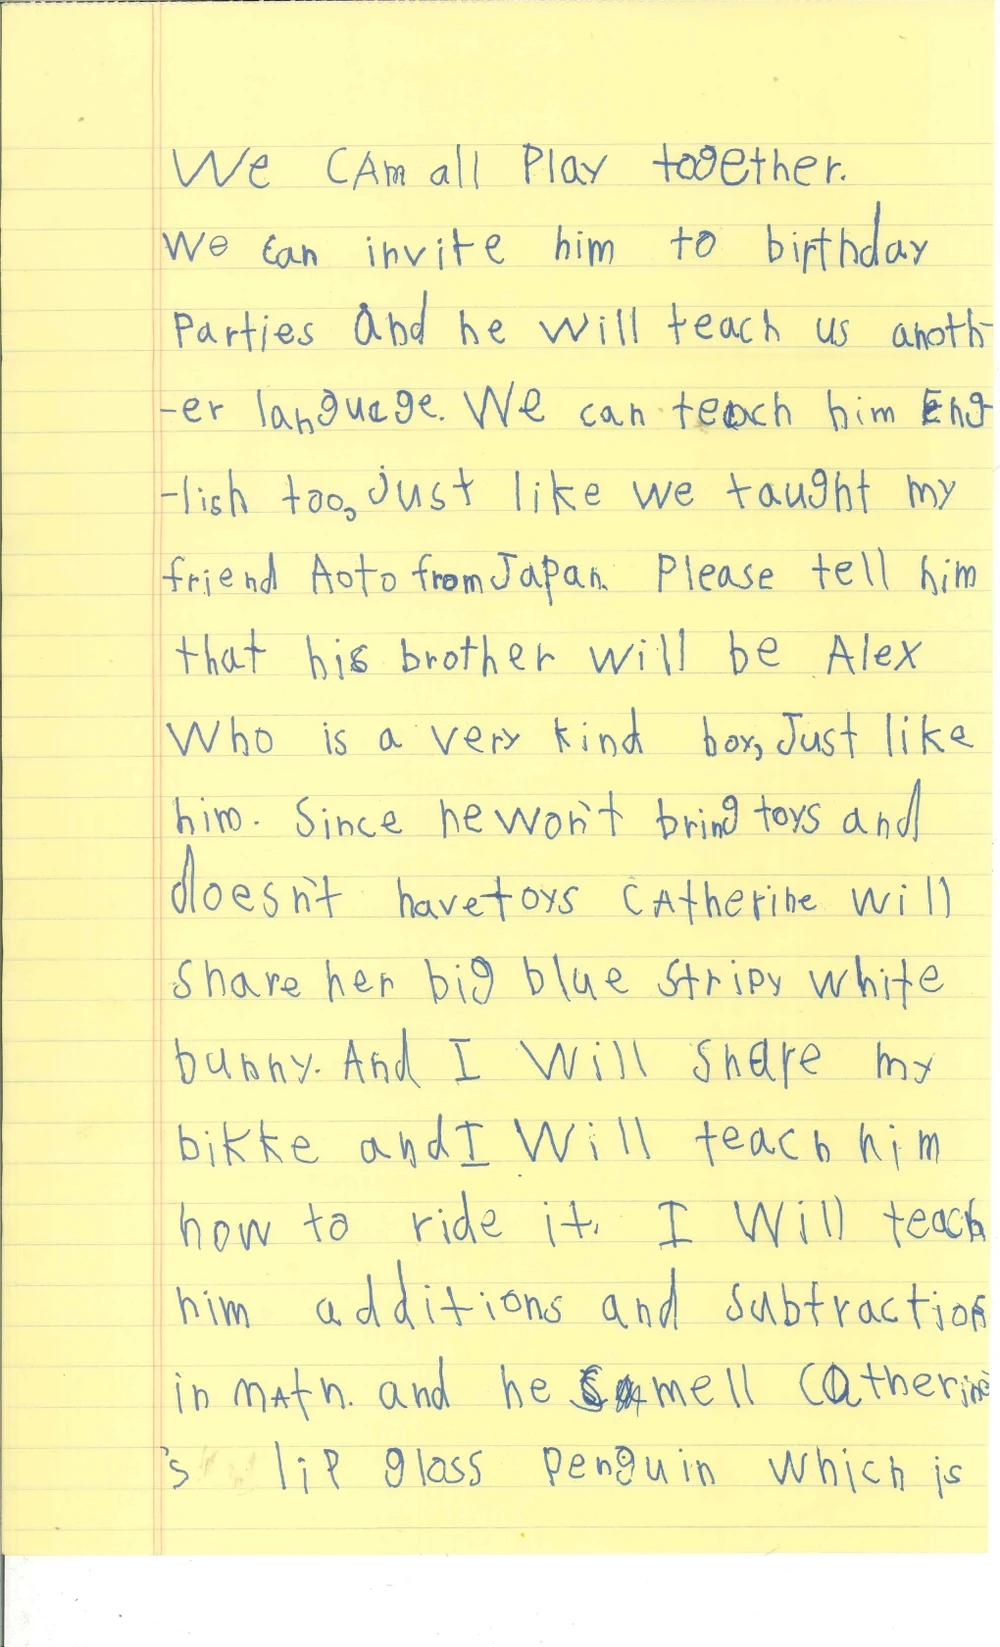 We CAm all Play together.
We can invite him to birthday
Parties and he will teach us anoth-
-er language. We can teach him Eng-
-lish too, just like we taught my
friend Aoto from Japan. Please tell him
that his brother will be Alex
Who is a very kind boy, Just like
him. Since he won't bring toys and
doesn't have toys CAtherine will
Share her big blue Stripy white
bunny. And I Will Share my
bikke and I Will teach him
how to ride it. I Will teach
him additions and subtraction
in mAth. and he smell Catherine
's lip gloss Penguin which is